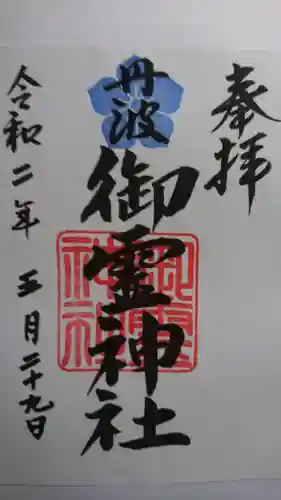 奉拝
丹波
御霊神社
令和二年 五月二十九日
御霊
神社